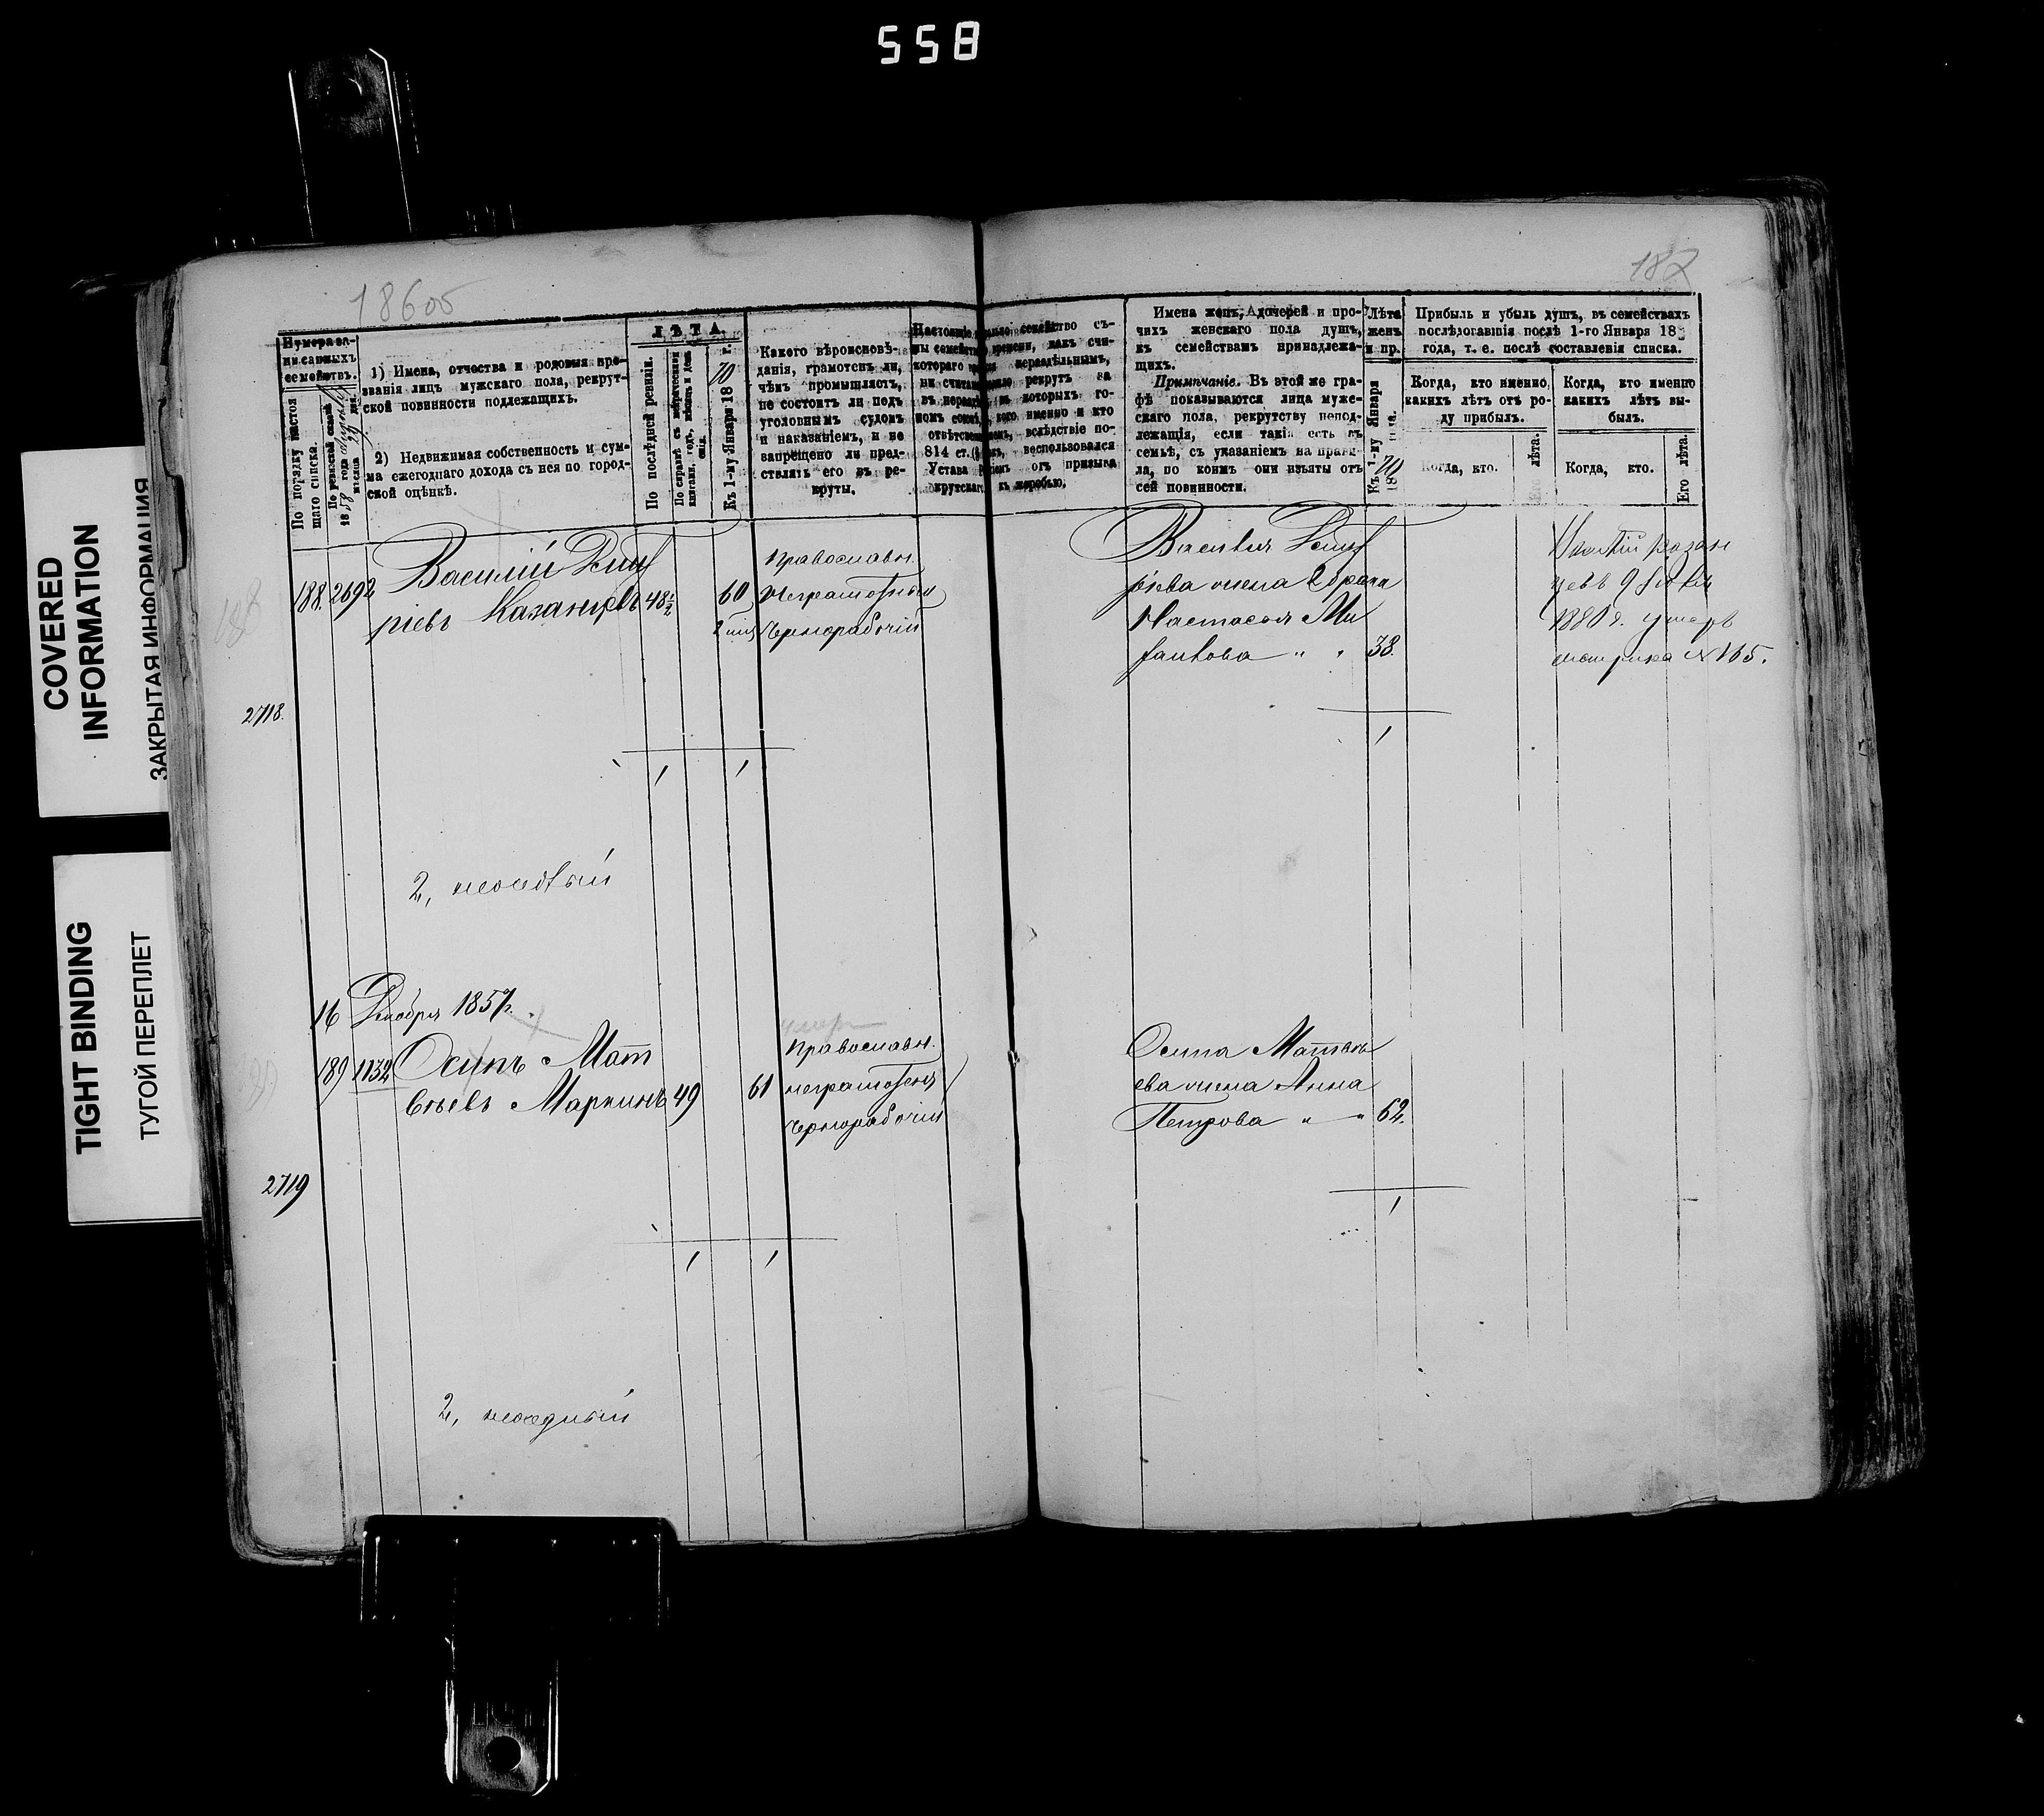 558
COVERED
INFORMATION
ЗАКРЫТАЯ ИНФОРМАЦИЯ
TIGHT BINDING
ТУГОЙ ПЕРЕПЛЕТ
18605
187
Нумера за-
писанныхъ
семействъ.
По порядку настоя
щаго списка.
По ревизской сказкѣ
1858 года
мѣсяца 29 дня.
1) Имена, отчества и родовыя про-
званія лицъ мужскаго пола, рекрут-
ской повинности подлежащихъ.
2) Недвижимая собственность и сум-
ма ежегоднаго дохода съ нея по город-
ской оцѣнкѣ.
ЛѢТА.
По послѣдней ревизіи.
По справкѣ съ метрическими
книгами, годъ, мѣсяцъ и день
Къ 1-му Января 1870 г.
Какого вѣроисповѣ-
данія, грамотенъ ли,
чѣмъ промышляетъ,
не состоитъ ли подъ
уголовнымъ судомъ
и наказаніемъ, и не
запрещено ли пред-
ставлять его въ ре-
круты.
Настоящее семейство съ-
времени, какъ счи-
котораго нераздѣльнымъ,
рекрутъ за
которыхъ го-
кого именно и кто
вслѣдствіе по-
814 ст. воспользовался
Устава отъ призыва
къ жеребью.
Имена женъ, дочерей и про-
чихъ женскаго пола душъ,
къ семействамъ принадлежа-
щихъ.
Примѣчаніе. Въ этой же гра-
фѣ показываются лица муже-
скаго пола, рекрутству непод-
лежащія, если такія есть въ
семьѣ, съ указаніемъ на прави-
ла, по коимъ они изъяты отъ
сей повинности.
Лѣта
женъ
и пр.
Къ 1-му Января
1870 года.
Прибыль и убыль душъ, въ семействахъ
послѣдовавшія послѣ 1-го Января 18
года, т. е. послѣ составленія списка.
Когда, кто именно,
какихъ лѣтъ отъ ро-
ду прибылъ.
Когда, кто именно
какихъ лѣтъ вы-
былъ.
Когда, кто.
Его лѣта.
Когда, кто.
Его лѣта.
188. 2692 Василій Дмит
ріевъ Казанцевъ 48½ 60
Православн.
неграмотный
чернорабочій
Василья Дмит
ріева жена 2 брака
Настасья Ми
38.
Василій Казан
цевъ 9
1880 г. умеръ
метрика № 165.
2718.
1 1 1
2,
16 Декабря 1857г.
умеръ
189 1132 Осипъ Мат
вѣевъ Маркинъ 49 61
Православн.
неграмотенъ
чернорабочій
Осипа Матвѣ
ева жена Анна
Петрова " — " 62.
2719
1 1 1
2,